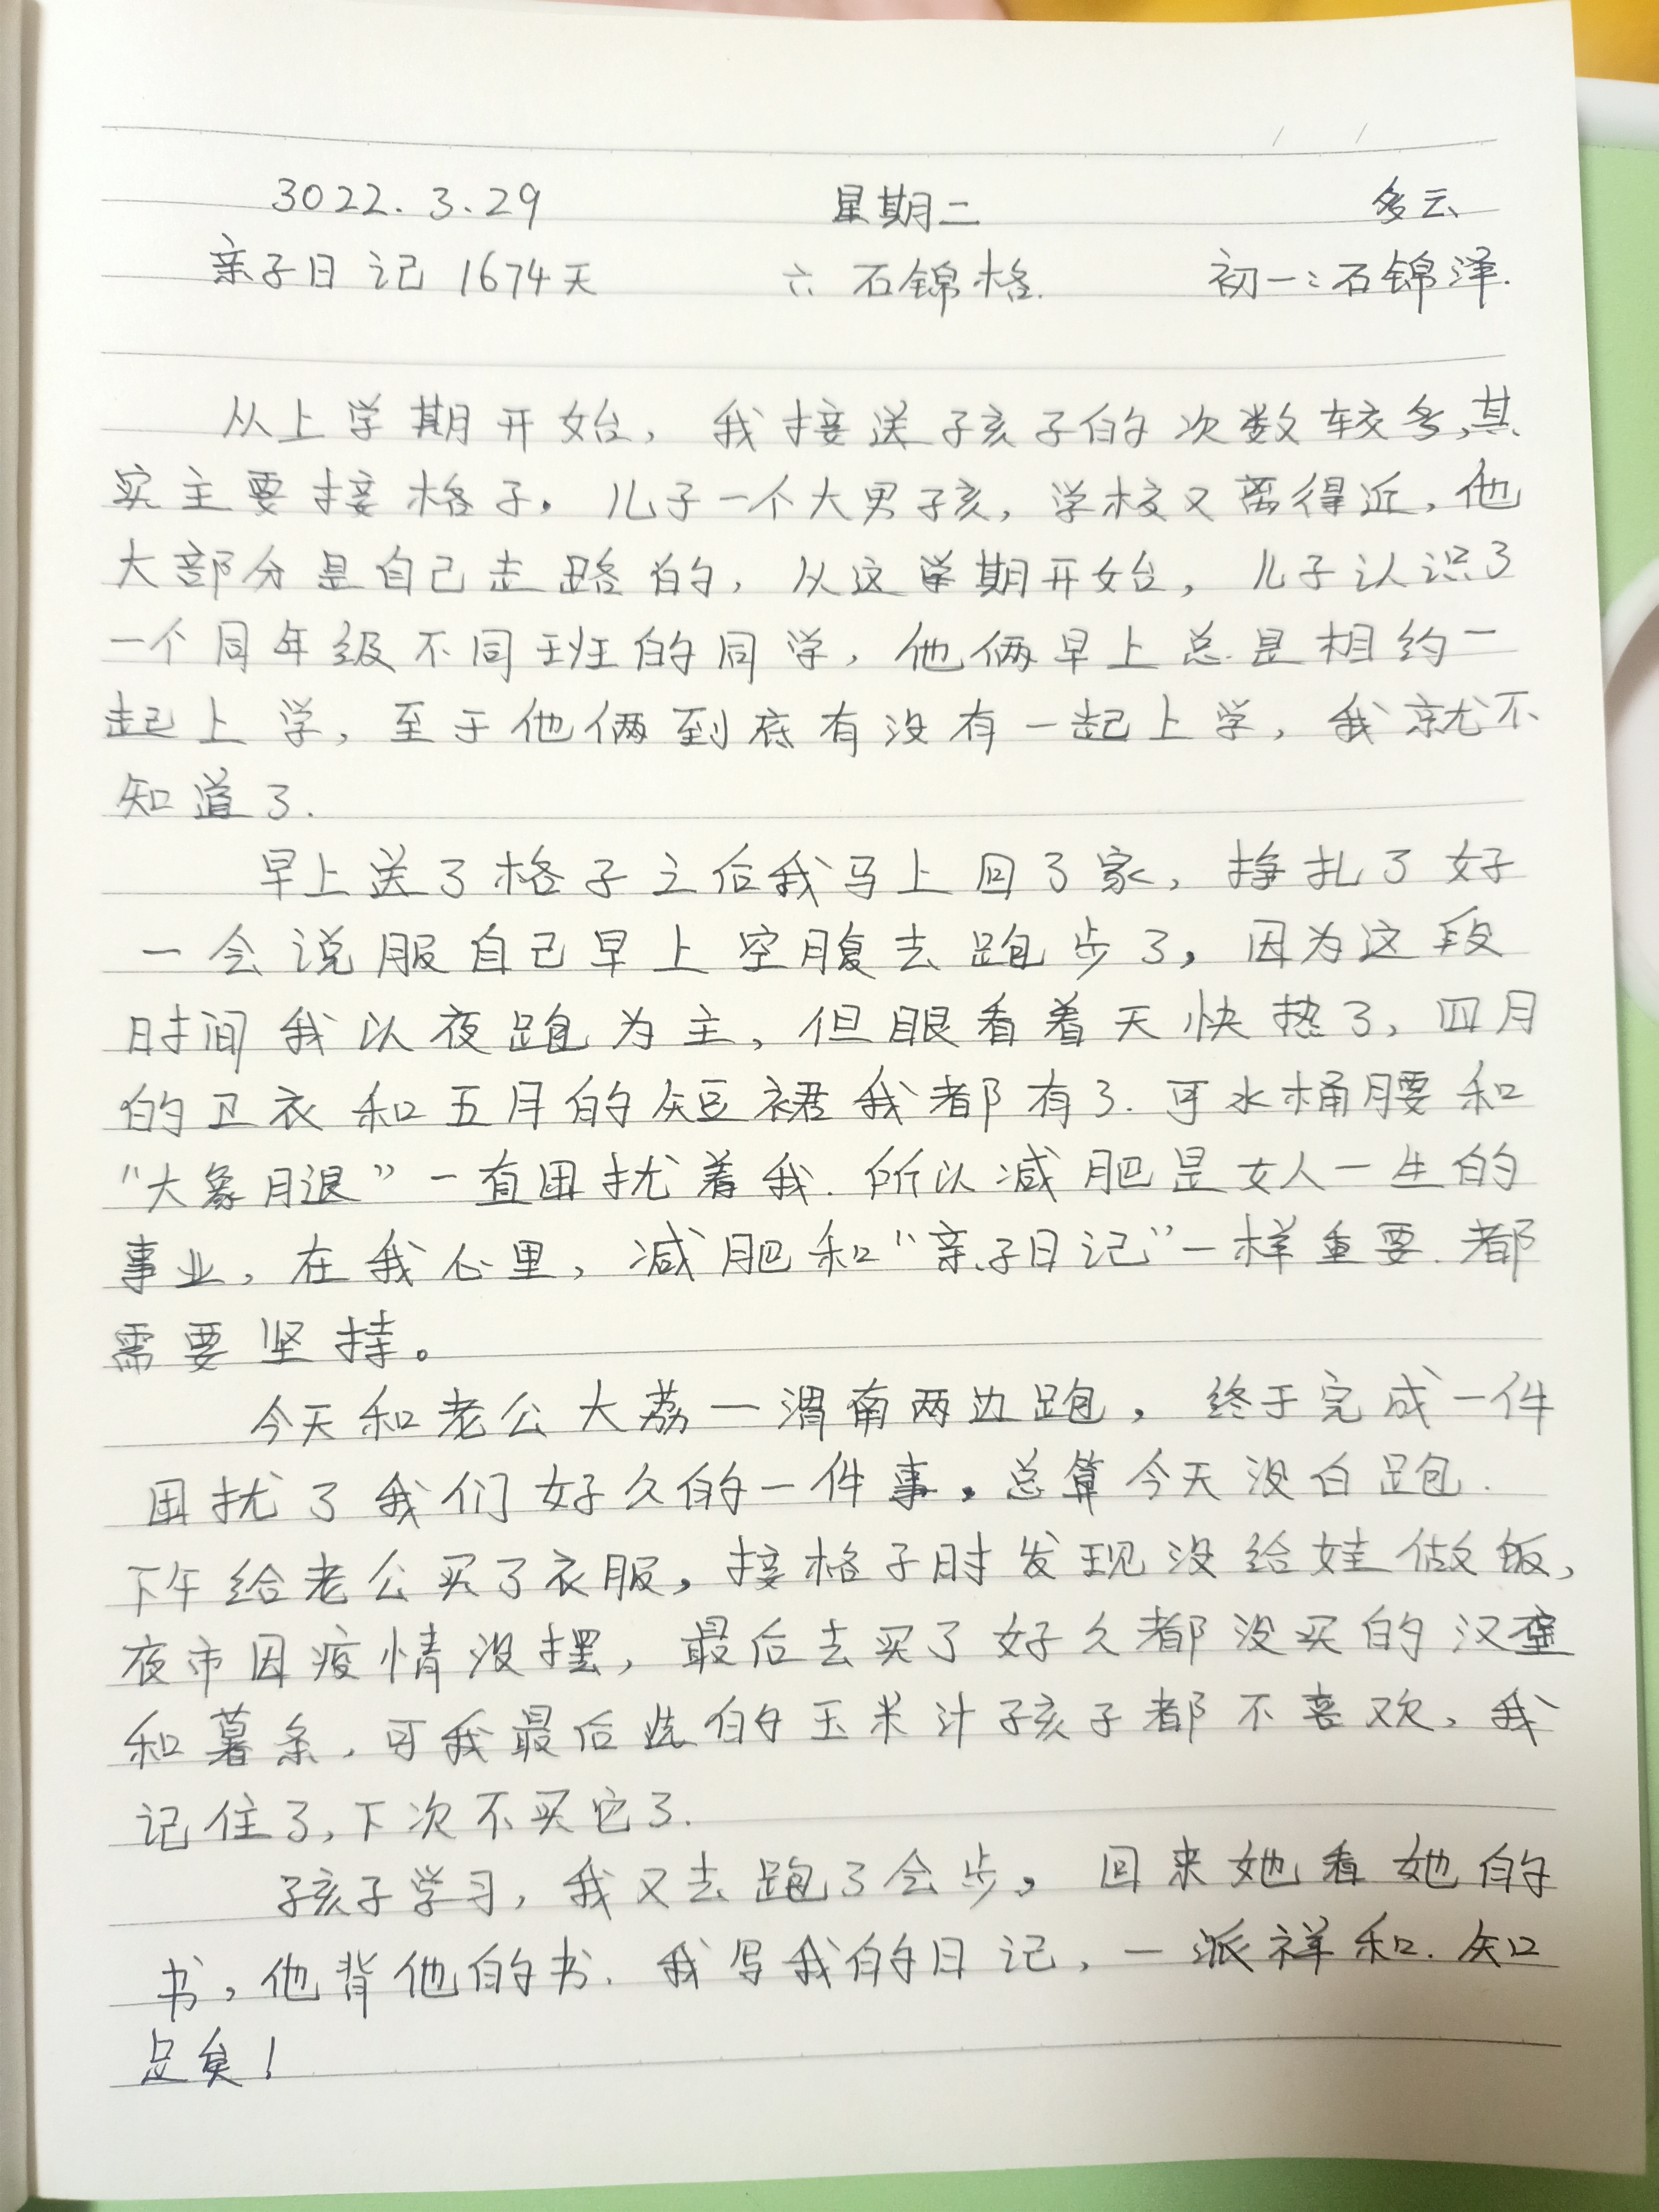 3022.3.29 星期二 多云
亲子日记 1674天 六 石锦格. 初一:石锦泽.
从上学期开始，我接送孩子的次数较多,其
实主要接格子。儿子一个大男孩，学校又离得近，他
大部分是自己走路的，从这学期开始，儿子认识了
一个同年级不同班的同学，他俩早上总是相约一
起上学，至于他俩到底有没有一起上学，我就不
知道了.
早上送了格子之后我马上回了家，挣扎了好
一会说服自己早上空腹去跑步了，因为这段
时间我以夜跑为主，但眼看着天快热了，四月
的卫衣和五月的短裙我都有了.可水桶腰和
“大象腿”一直困扰着我.所以减肥是女人一生的
事业，在我心里，减肥和“亲子日记”一样重要.都
需要坚持。
今天和老公大荔—渭南两边跑，终于完成一件
困扰了我们好久的一件事，总算今天没白跑.
下午给老公买了衣服，接格子时发现没给娃做饭，
夜市因疫情没摆，最后去买了好久都没买的汉堡
和薯条，可我最后选的玉米汁孩子都不喜欢，我
记住了,下次不买它了.
孩子学习，我又去跑了会步，回来她看她的
书，他背他的书.我写我的日记，一派祥和.知
足矣！